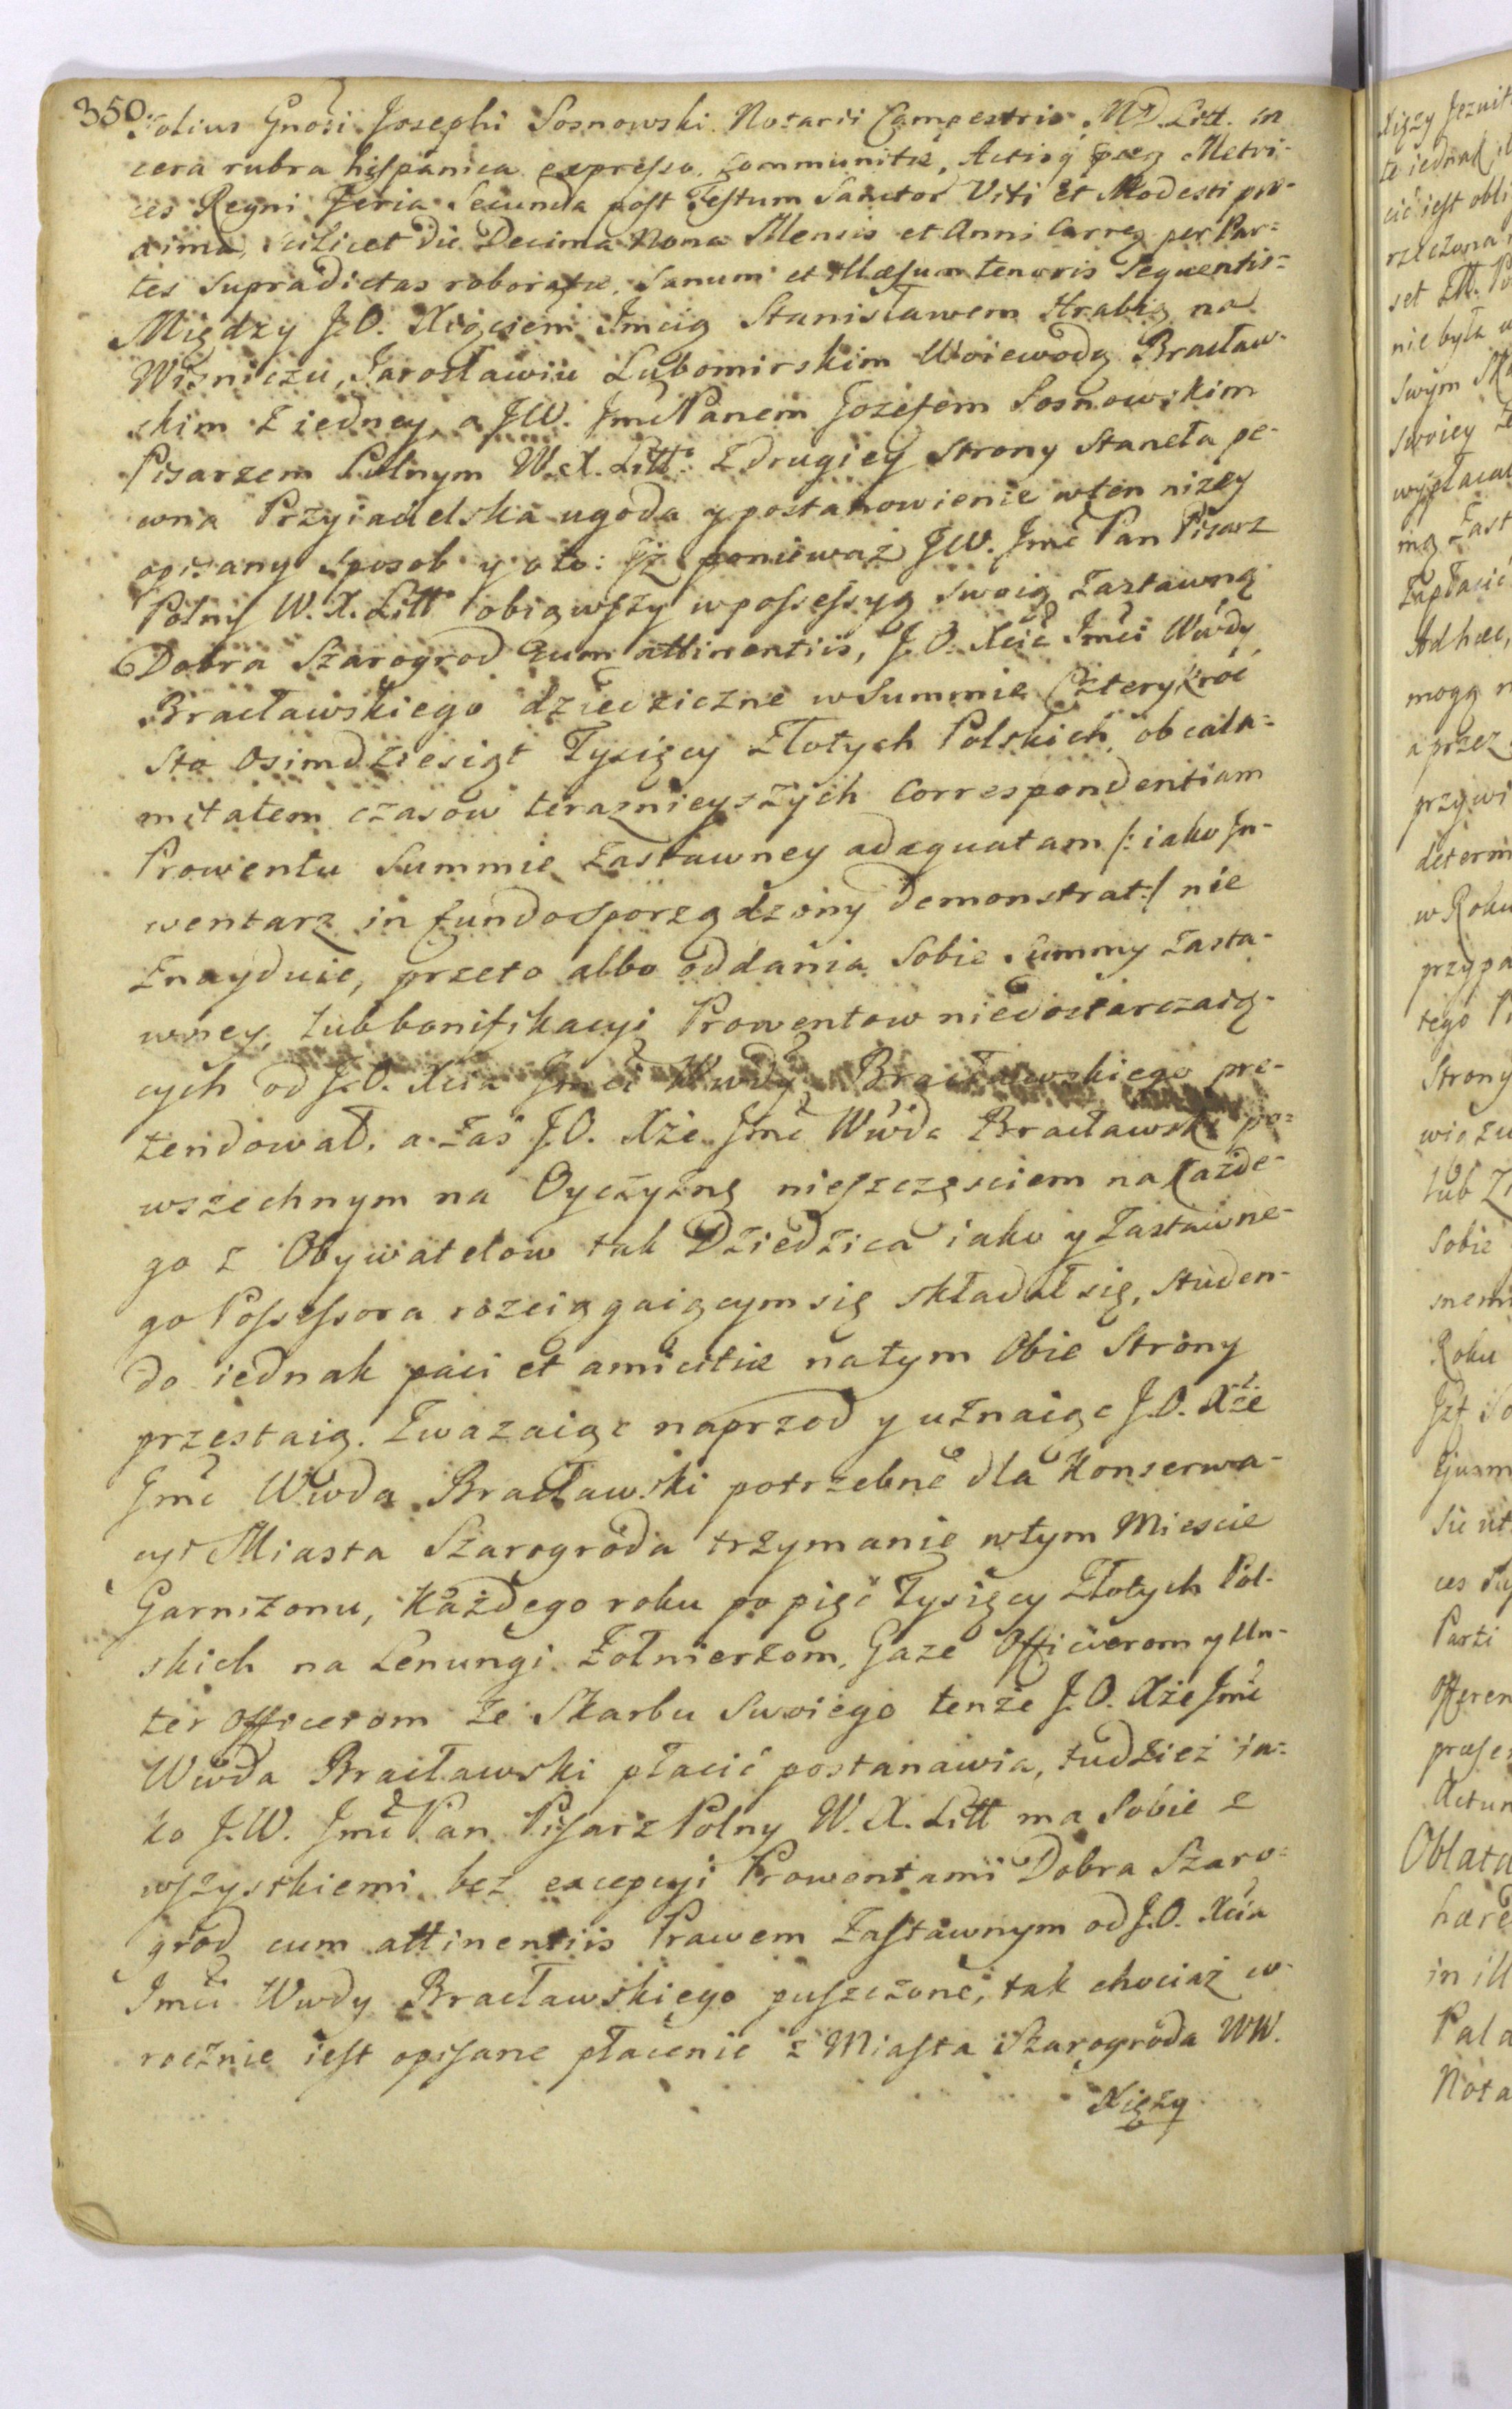 350
Solius Gnosi Josephi Sosnowski Notarii Campestris M.D. Litt. in
cera rubra hispanica expresso, communitæ, Actisq præs Metri-
ces Regni Feria Secunda post Festum Sanctor Viti et Modesti pro-
xima, scilicet die Decima Nona Mensis et Anni Curren per Par-
tes supradictas roboratæ. Sanum et illæsum tenoris sequentis-
Między J.O. Xiążęciem Jmcią Stanisławem Hrabią na
Wisniczu, Jarosławiu Lubomirskim Woiewodą Bracław-
skim z iedney, a JW. Jmć Panem Jozefem Sosnowskim
Pisarzem Polnym W.X. Litt: z drugiey strony staneła pe-
wna Przyiacielska ugoda y postanowienie w ten niżey
opisany sposob y o to: Jż ponieważ JW. Jmć Pan Pisarz
Polny W.X. Litt obiąwszy w possessyą swoią zastawną
Dobra Szarogrod cum attinentiis, J.O. Xcia Jmci Wwdy
Bracławskiego dziedziczne w Summie Cztery kroć
sto osimdziesiąt Tysięcy Złotych Polskich, ob cala-
mitatem czasow teraznieyszych correspondentiam
Prowentu Summie zastawney adæquatam /: iako In-
wentarz in fundo sporządzony demonstrat:/ nie
znayduie, przeto albo oddania sobie Summy zasta-
wney, lub bonifikacyi Prowentow niedostarczaią-
cych od J.O. Xcia Jmci Wwdy Bracławskiego pre-
tendował, a zaś J.O. Xże Jmć Wwda Bracławski po-
wszechnym na Oyczyznę nieszczęsciem na każde-
go z Obywatelow tak Dziedzica iako y zastawne-
go Possessora rozciągaiącym się składał się, studen-
do iednak paci et amicitiæ na tym Obie Strony
przestaią. Zwazaiąc naprzod y uznaiąc J.O. Xże
Jmć Wwda Bracławski potrzebne dla Konserwa-
cyi Miasta Szarogroda trzymanie w tym Miescie
Garnizonu, każdego roku po pięć Tysięcy Złotych Pol-
skich na Lenungi Żołnierzom, Gaze Officierom y Un-
ter Officerom ze Skarbu Swoiego tenże J.O. Xże Jmć
Wwda Bracławski płacić postanawia, tudzież ia-
ko J.W. Jmć Pan Pisarz Polny W.X. Litt ma sobie z
wszystkiemi bez excepcyi Prowentami Dobra Szaro-
grod cum attinentiis Prawem Zastawnym od J.O. Xcia
Jmci Wwdy Bracławskiego puszczone, tak chociaż co
rocznie iest opisane płacenie z Miasta Szarogroda WW.
Xięży
Xięży Jezuit
te iednak
cić iest obli
rzeczona
set Zł. Po
nie była
swym
swoiey
wypłacał
mą Zast
zapłacić
Ad hæc,
mogą
a przez
przywi
determ
w Roku
przypa
tego
Strony
wiązu
lub
Sobie
Roku
ces
Parti
Offeren
præse
Actum
Oblata
hære
in ill
Pala
Nota